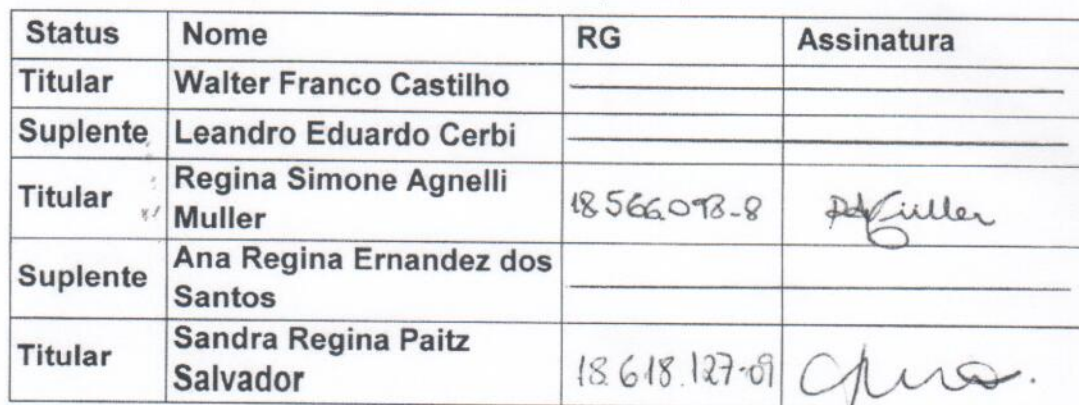 Status Nome RG Assinatura
Titular Walter Franco Castilho
Suplente Leandro Eduardo Cerbi
Titular Regina Simone Agnelli
Muller
Suplente Ana Regina Ernandez dos
Santos
Titular Sandra Regina Paitz
Salvador 18.618.127-09